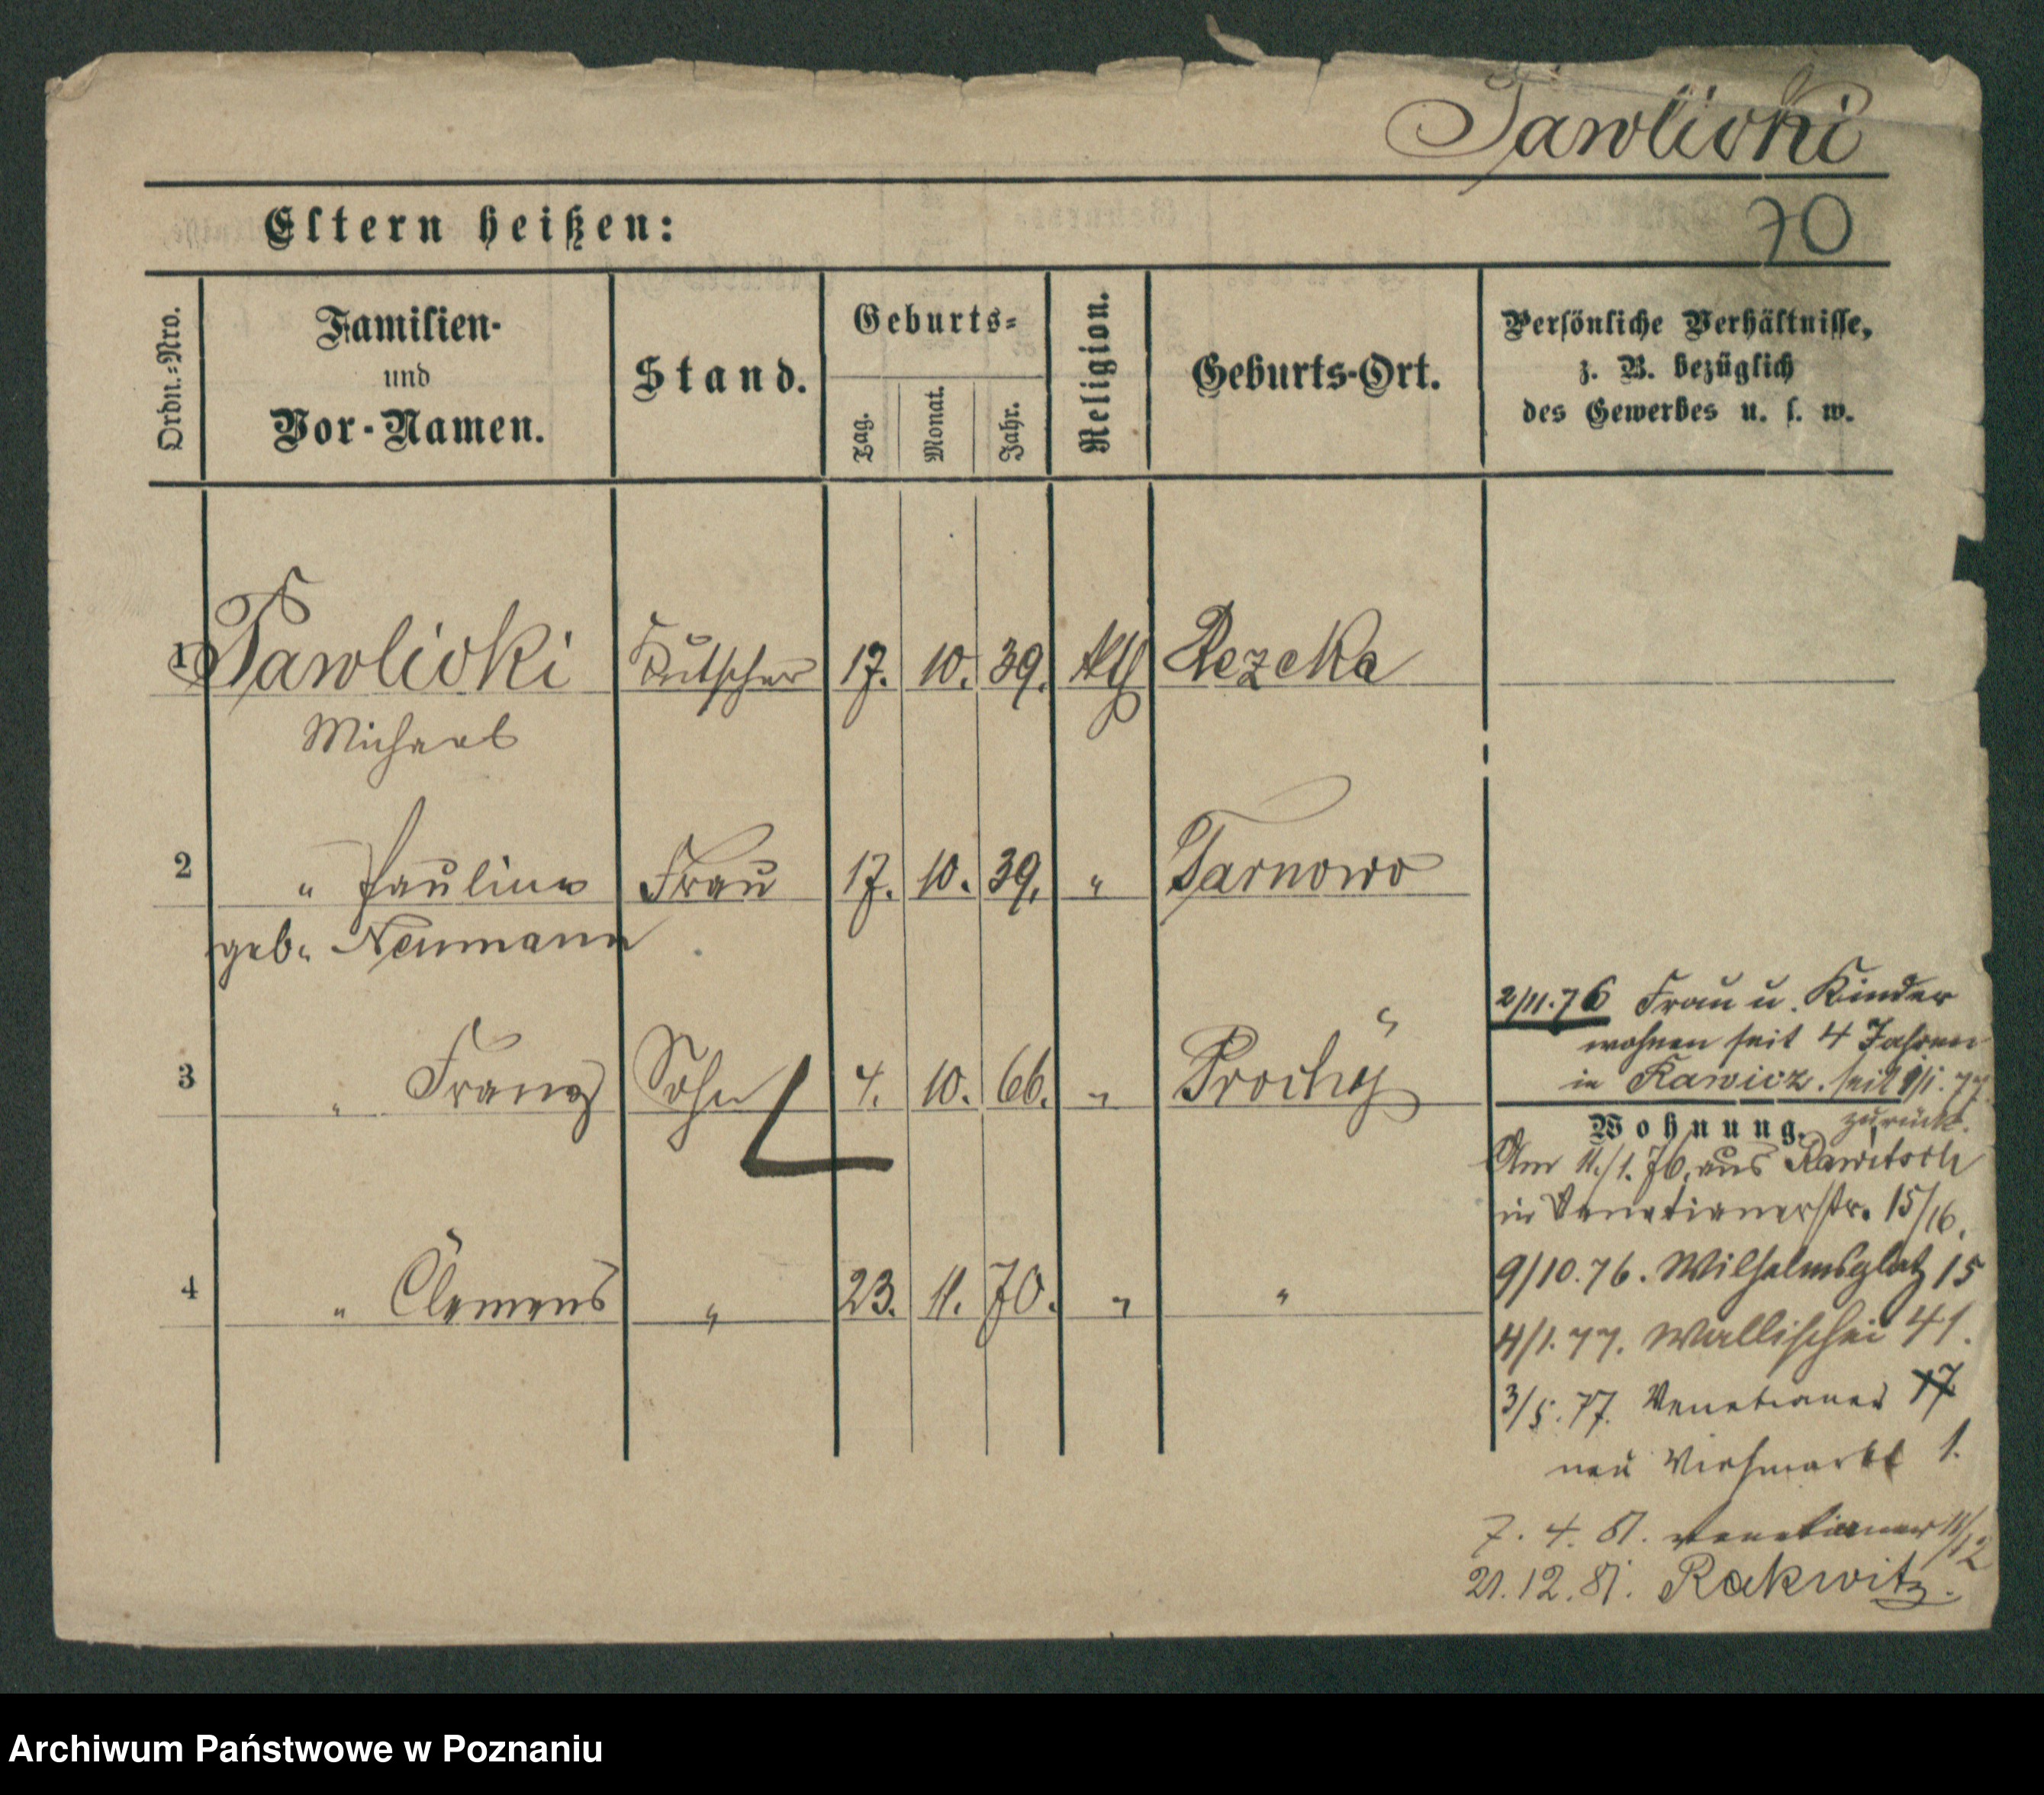 Pawlicki
70
Eltern heißen:
Ordn.-Nro.
Familien-
und
Vor-Namen.
Stand.
Geburts-
Tag.
Monat.
Jahr.
Religion.
Geburts-Ort.
Persönliche Verhältnisse,
z. B. bezüglich
des Gewerbes u. s. w.
1 Pawlicki Kutscher 17. 10. 39. kth Rezcka
Michael
2 " Pauline Frau 17. 10. 39. " Tarnowo
geb. Neumann
3 " Franz Sohn 4. 10. 66. " Prochy
4 " Clemens " 23. 11. 70. " "
2/11.76 Frau u. Kinder
wohnen seit 4 Jahren
in Rawicz. seit 9/1. 77.
zurück.
Wohnung.
Am 11./1. 76. aus Rawitsch
in Venetianerstr. 15/16.
9/10.76. Wilhelmsplatz 15
4/1.77. Wallischei 41.
3/5.77. Venetianer 17
neu Viehmarkt 1.
7. 4. 81. Venetianer 11/12
21.12.81. Rakwitz.
Archiwum Państwowe w Poznaniu